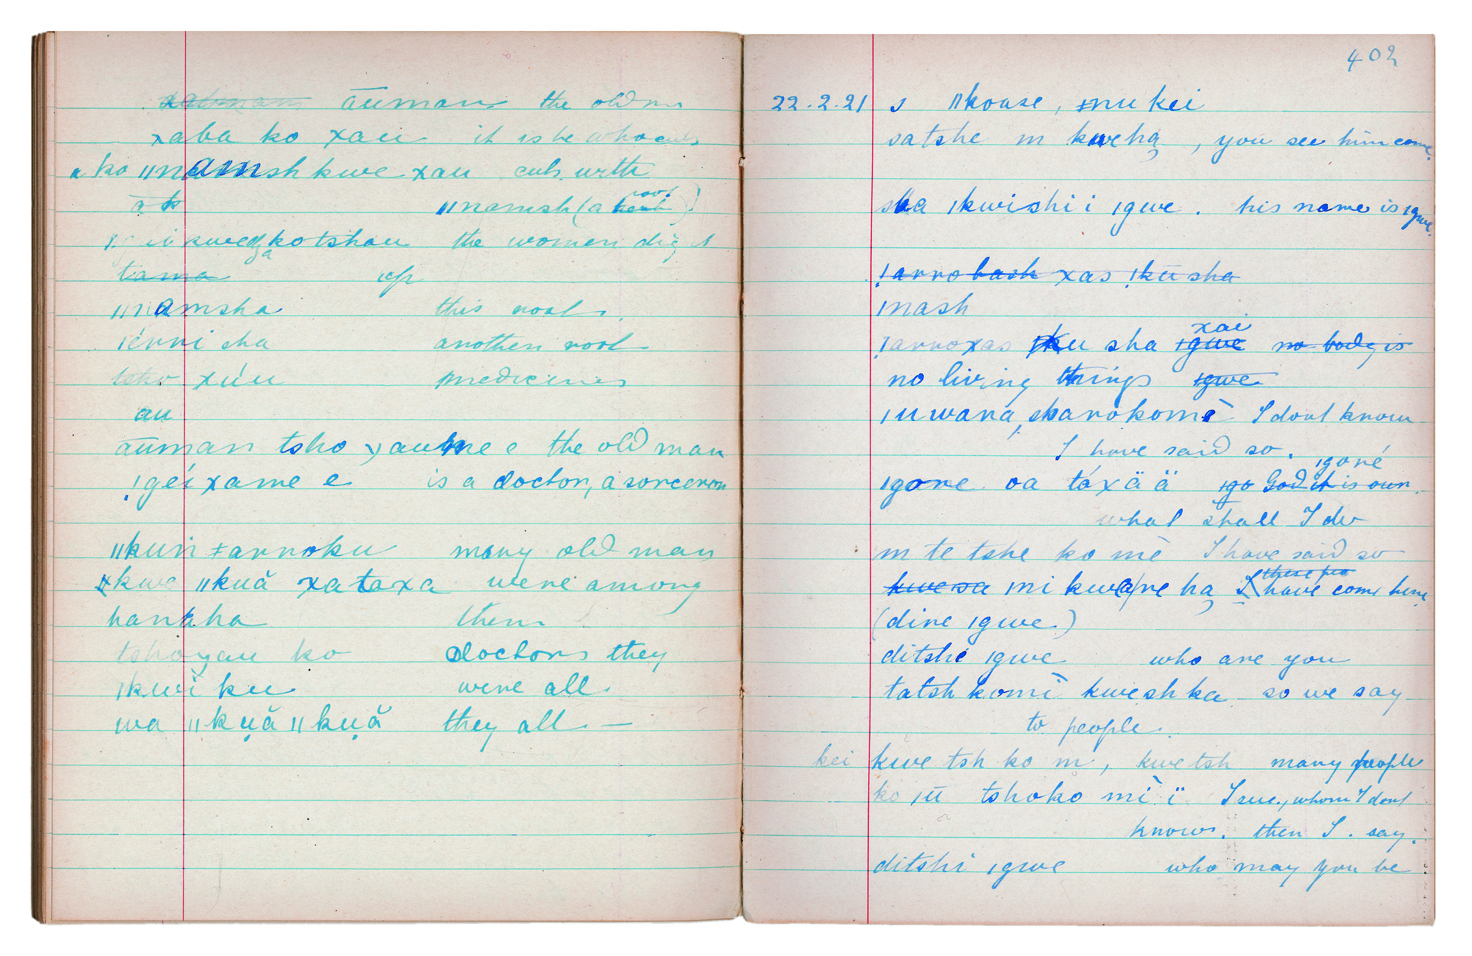 āuman the old man
xaba ko xau it is he who cuts
ko ǁnamsh kwe xau cuts with
ǁnamsh (a root)
kotshau the women dig it
tama up
ǁnamsha this root.
ǀérri sha another root
tsho xúu medicines
au
āuman tsho xaume e the old man
ǃgéi xame e is a doctor, a sorcerer
ǁkuri ǂarroku many old man
kwe ǁkuă xataxa were among
hankha them
tshoxau ko doctors they
ǀkui ku were all.
wa ǁkụă ǁkụă they all. —
402
22.2.21 s ǁkouse, mu kei
satshe m kweha, you see him come.
sha ǀkwishi i ǀgwe. his name is ǀgwe.
ǃarrobash xas ǃkū sha
ǀnash
xai
ǃarroxas ǃku sha ǀgwe no body is
no living things ǀgwe
ǀu wara, sharokomè I dont know
I have said so. ǀgoré
ǀgore oa táxä ä ǀgo God it is our.
what shall I do
m te tshe ko mè I have said so
these peo
kwesa ǀni kware ha I have come here,
(dire ǀgwe.)
ditshé ǀgwe who are you
tatshkomì kweshka so we say
to people.
kei kwe tsh ko m, kwe tsh many people
ko ǀū tshoko mì ï I see, whom I dont
know. then I. say.
ditshi ǀgwe who may you be